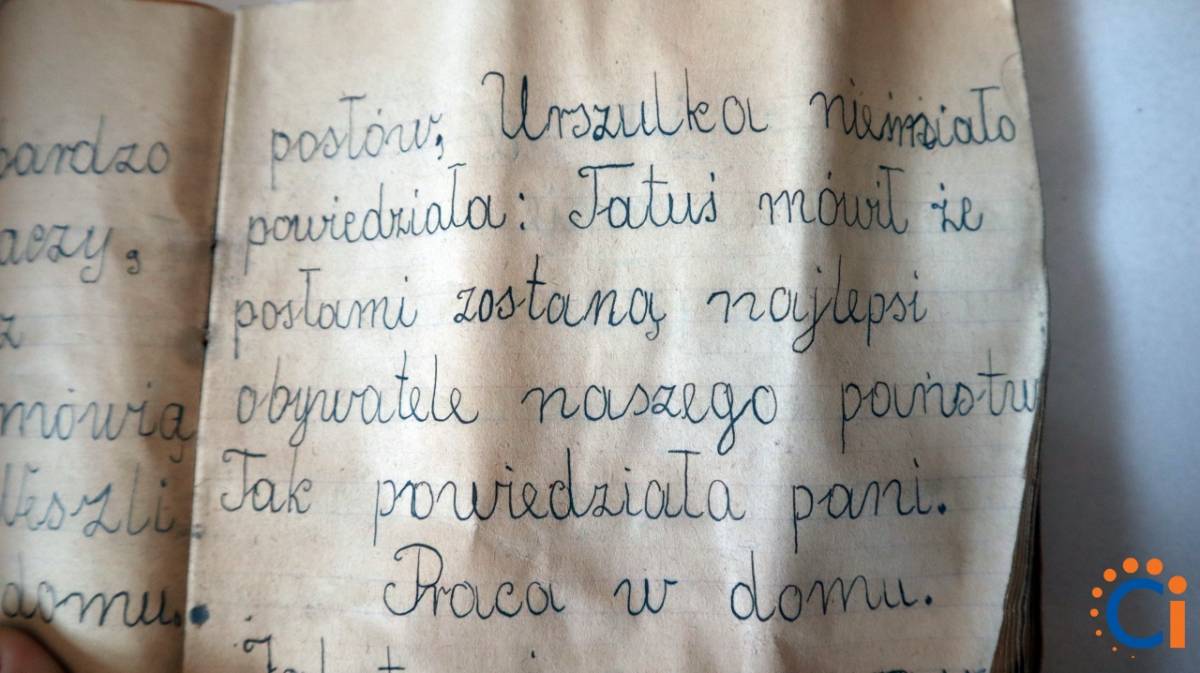 bardzo
aczy,
z
mówią
Weszli
domu.
posłów, Urszulka nieśmiało
powiedziała: Tatuś mówił że
posłami zostaną najlepsi
obywatele naszego państw
Tak powiedziała pani.
Praca w domu.
Ci